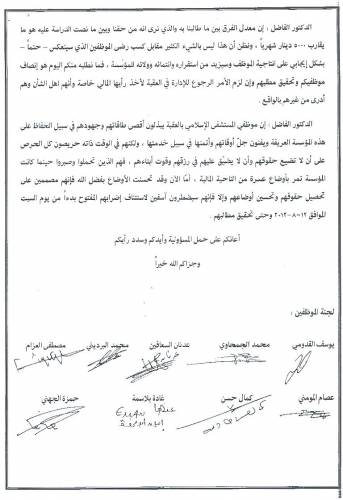 الدكتور الفاضل : إن معدل الفرق بين ما طالبنا به والذي نرى انه من حقنا وبين ما نصت الدراسة عليه هو ما
يقارب ٥٠٠٠ دينار شهرياً ، ونظن أن هذا ليس بالشيء الكثير مقابل كسب رضى الموظفين الذي سينعكس – حتماً –
بشكل إيجابي على انتاجية الموظف وسيزيد من استقراره وانتمائه وولائه للمؤسسة ، فما نطلبه منكم اليوم هو إنصاف
موظفيكم وتحقيق مطلبهم وإن لزم الأمر الرجوع للإدارة في العقبة لأخذ رأيها المالي خاصة وأنهم اهل الشأن وهم
أدرى من غيرهم بالواقع.
الدكتور الفاضل : إن موظفي المستشفى الإسلامي بالعقبة يبذلون أقصى طاقاتهم وجهودهم في سبيل الحفاظ على
هذه المؤسسة العريقة ويفنون جلّ أوقاتهم وأثمنها في سبيل خدمتها ، ولكنهم في الوقت ذاته حريصون كل الحرص
على أن لا تضيع حقوقهم وأن لا يضيّق عليهم في رزقهم وقوت أبناءهم ، فهم الذين تحملوا وصبروا حينما كانت
المؤسسة تمر بأوضاع عسرة من الناحية المالية ، أمّا الآن وقد تحسنت الأوضاع بفضل الله فإنهم مصممين على
تحصيل حقوقهم وتحسين أوضاعهم وإلا فإنهم سيضطرون آسفين لاستئناف إضرابهم المفتوح بدءاً من يوم السبت
الموافق ١٢-٨-٢٠١٢ وحتى تحقيق مطالبهم .
أعانكم على حمل المسؤولية وأيدكم وسدد رأيكم
وجزاكم الله خيراً
لجنة الموظفين :
يوسف القدومي محمد الجمحاوي عدنان السعافين محمد البرديني مصطفى العزام
عصام المومني كمال حسن غادة بلاسمة حمزة الجهني